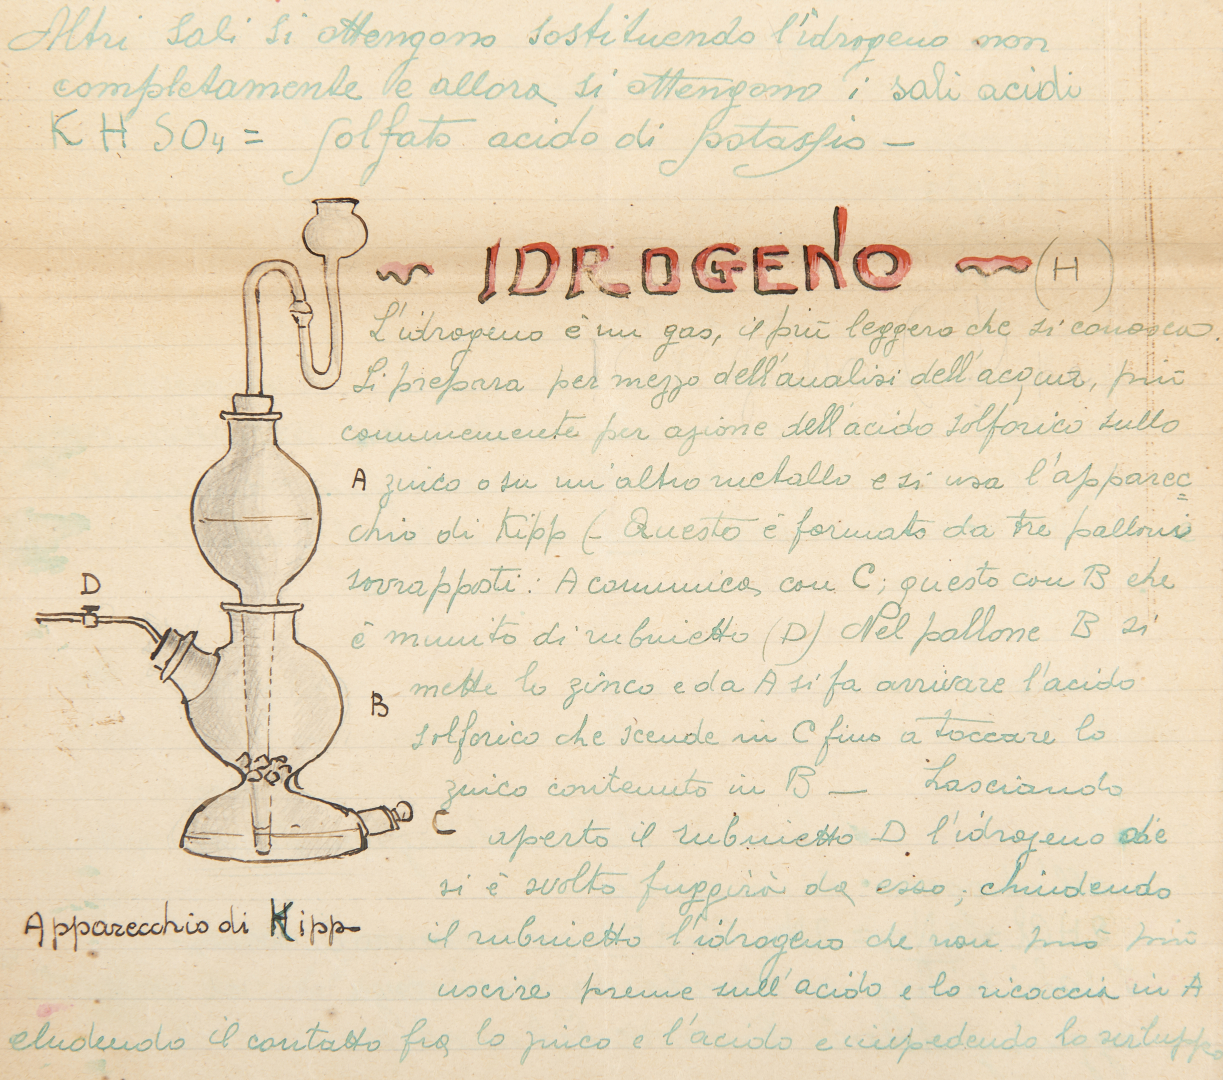 Altri sali si ottengono sostituendo l'idrogeno non
completamente e allora si ottengono i sali acidi
KHSO₄ = solfato acido di potassio —
~ IDROGENO ~ (H)
L'idrogeno è un gas, il più leggero che si conosca.
Si prepara per mezzo dell'analisi dell'acqua, più
comunemente per azione dell'acido solforico sullo
A
zinco o su un'altro metallo e si usa l'apparec=
chio di Kipp (- Questo è formato da tre palloni
sovrapposti: A comunica con C, questo con B che
D
è munito di rubinetto (D) Nel pallone B si
mette lo zinco e da A si fa arrivare l'acido
B
solforico che scende in C fino a toccare lo
zinco contenuto in B — Lasciando
C
aperto il rubinetto D l'idrogeno che
si è svolto fuggirà da esso, chiudendo
Apparecchio di Kipp-
il rubinetto l'idrogeno che non può più
uscire preme sull'acido e lo ricaccia in A
eludendo il contatto fra lo zinco e l'acido e impedendo lo sviluppo